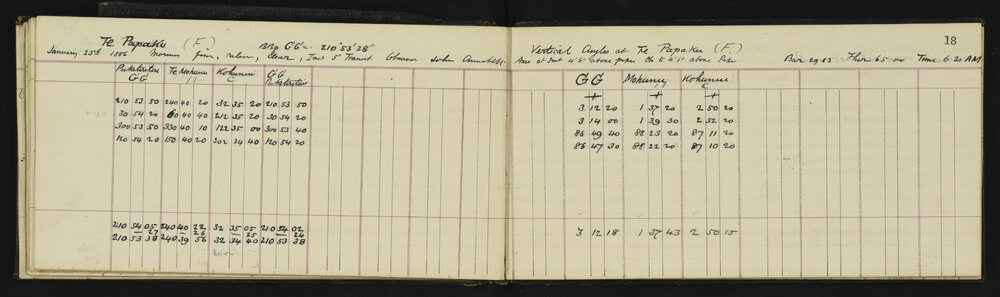 Te Papaku (F.) Brg GG's 210° 53' 38"
January 25th 1886 Morning fine, calm, clear, Inst 5" Transit Observer John Annabell
Puketarata Te Mokunui Kohunui GG
GG C Puketarata
210 53 50 240 40 20 32 35 20 210 53 50
30 54 20 60 40 40 212 35 20 30 54 20
300 53 50 330 40 10 122 35 00 300 53 40
120 54 20 150 40 20 302 34 40 120 54 20
210 54 05 240 40 22 32 35 05 210 54 02
27 26 25 24
210 53 38 240 39 56 32 34 40 210 53 38
18
Vertical Angles at Te Papaku (F.)
Axis of Inst 4'6" above pipe above Pipe Bar 29.53 Ther 65.00 Time 6.20 AM
GG Mokunui Kohunui
C
+ + +
3 12 20 1 37 20 2 50 20
3 14 00 1 39 30 2 52 20
86 49 40 88 23 20 87 11 20
86 47 30 88 22 20 87 10 20
3 12 18 1 37 43 2 50 15